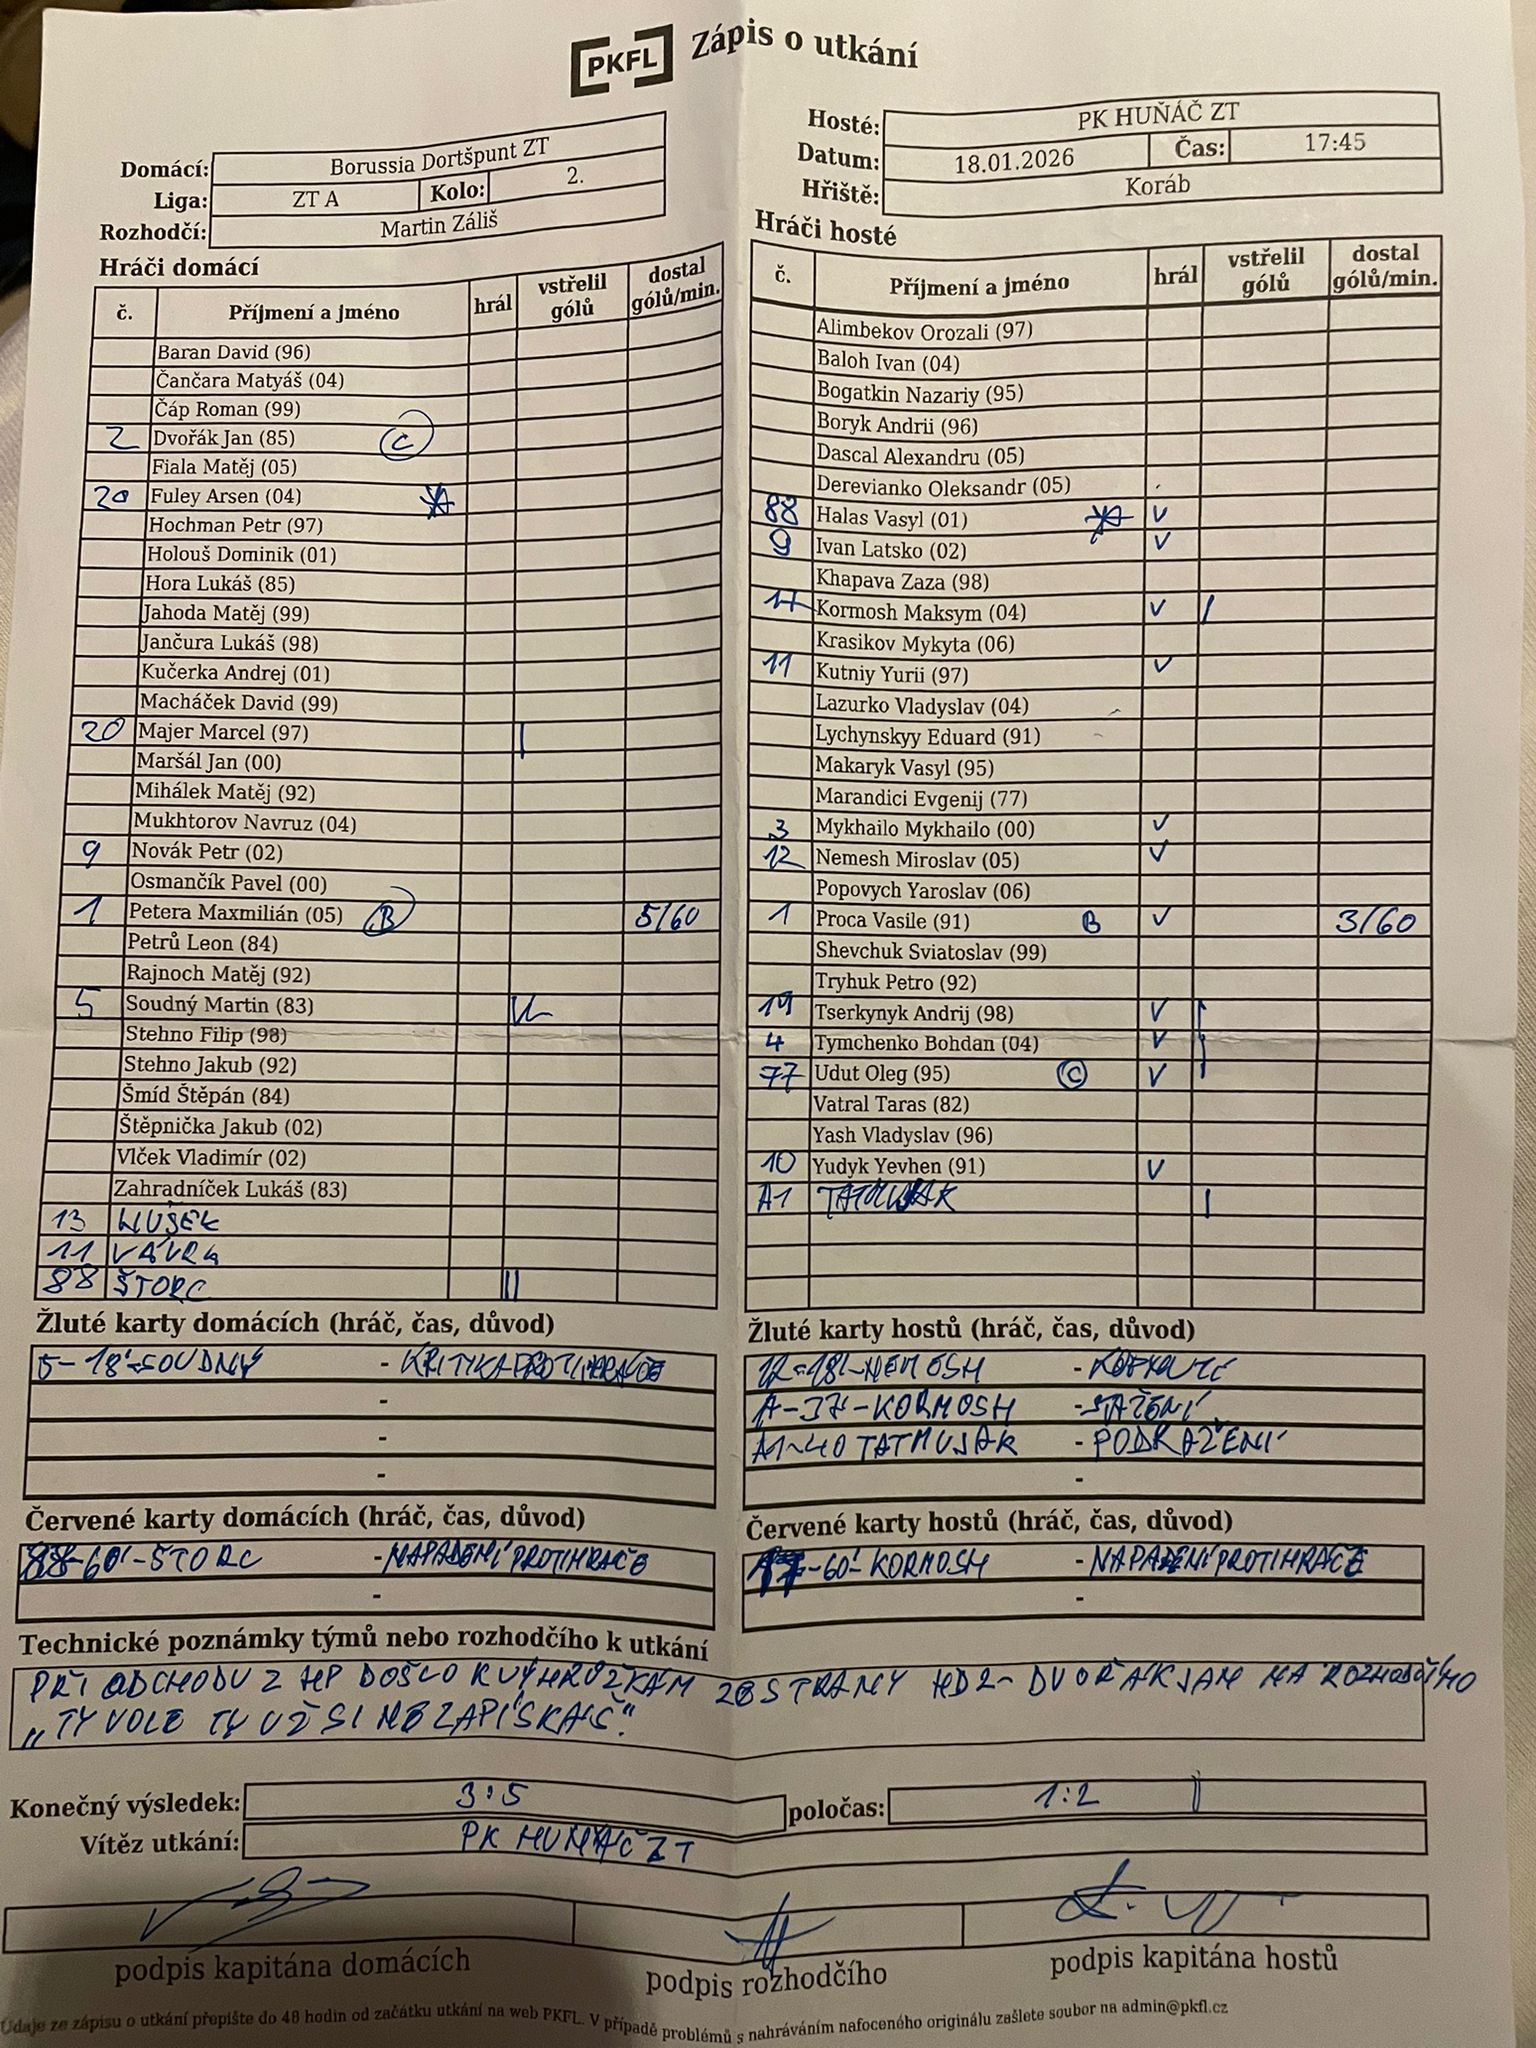 PKFL Zápis o utkání
Domácí: Borussia Dortšpunt ZT
Liga: ZT A Kolo: 2.
Rozhodčí: Martin Záliš
Hosté: PK HUŇÁČ ZT
Datum: 18.01.2026 Čas: 17:45
Hřiště: Koráb
Hráči domácí
č. Příjmení a jméno hrál vstřelil gólů dostal gólů/min.
Baran David (96)
Čančara Matyáš (04)
Čáp Roman (99)
2 Dvořák Jan (85) C
Fiala Matěj (05)
20 Fuley Arsen (04)
Hochman Petr (97)
Holouš Dominik (01)
Hora Lukáš (85)
Jahoda Matěj (99)
Jančura Lukáš (98)
Kučerka Andrej (01)
Macháček David (99)
20 Majer Marcel (97) |
Maršál Jan (00)
Mihálek Matěj (92)
Mukhtorov Navruz (04)
9 Novák Petr (02)
Osmančík Pavel (00)
1 Petera Maxmilián (05) B 5/60
Petrů Leon (84)
Rajnoch Matěj (92)
5 Soudný Martin (83)
Stehno Filip (98)
Stehno Jakub (92)
Šmíd Štěpán (84)
Štěpnička Jakub (02)
Vlček Vladimír (02)
Zahradníček Lukáš (83)
13
11 VÁVRA
88 ŠTORC ||
Hráči hosté
č. Příjmení a jméno hrál vstřelil gólů dostal gólů/min.
Alimbekov Orozali (97)
Baloh Ivan (04)
Bogatkin Nazariy (95)
Boryk Andrii (96)
Dascal Alexandru (05)
Derevianko Oleksandr (05)
88 Halas Vasyl (01) v
9 Ivan Latsko (02) v
Khapava Zaza (98)
17 Kormosh Maksym (04) v |
Krasikov Mykyta (06)
11 Kutniy Yurii (97) v
Lazurko Vladyslav (04)
Lychynskyy Eduard (91)
Makaryk Vasyl (95)
Marandici Evgenij (77)
3 Mykhailo Mykhailo (00) v
12 Nemesh Miroslav (05) v
Popovych Yaroslav (06)
1 Proca Vasile (91) B v 3/60
Shevchuk Sviatoslav (99)
Tryhuk Petro (92)
19 Tserkynyk Andrij (98) v |
4 Tymchenko Bohdan (04) v |
77 Udut Oleg (95) C v |
Vatral Taras (82)
Yash Vladyslav (96)
10 Yudyk Yevhen (91) v
A1 |
Žluté karty domácích (hráč, čas, důvod)
5-18'-SOUDNÝ - KRITIKA PROTIHRÁČE
-
-
-
Žluté karty hostů (hráč, čas, důvod)
12-18'-NEMOSH - KOPNUTÍ
A-37-KORMOSH - STAŽENÍ
A1-40 TATMUJAK - PODRAŽENÍ
-
Červené karty domácích (hráč, čas, důvod)
88-60'-ŠTORC - NAPADENÍ PROTIHRÁČE
-
Červené karty hostů (hráč, čas, důvod)
17-60'-KORMOSH - NAPADENÍ PROTIHRÁČE
-
Technické poznámky týmů nebo rozhodčího k utkání
PŘI ODCHODU Z HP DOŠLO K VÝHRŮŽKÁM ZE STRANY HD2-DVOŘÁK JAN NA ROZHODČÍHO
„TY VOLE TY UŽ SI NEZAPÍSKÁŠ."
Konečný výsledek: 3:5 poločas: 1:2
Vítěz utkání: PK HUŇÁČ ZT
podpis kapitána domácích podpis rozhodčího podpis kapitána hostů
Údaje ze zápisu o utkání přepište do 48 hodin od začátku utkání na web PKFL. V případě problémů s nahráváním nafoceného originálu zašlete soubor na admin@pkfl.cz